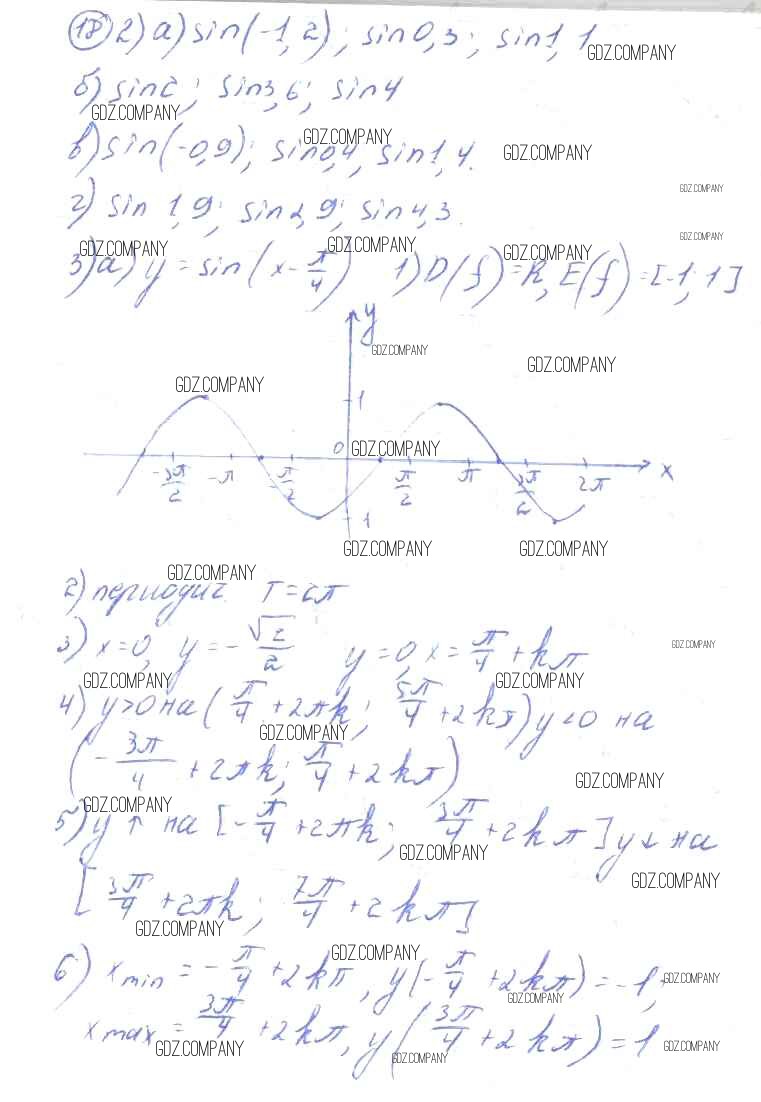 18) 2) а) sin(-1,2); sin0,3; sin1,1
GDZ.COMPANY
б) sin2; sin3,6; sin4
GDZ.COMPANY
GDZ.COMPANY
в) sin(-0,9); sin0,4, sin1,4.
GDZ.COMPANY
GDZ.COMPANY
г) sin 1,9; sin2,9; sin4,3.
GDZ.COMPANY
GDZ.COMPANY GDZ.COMPANY GDZ.COMPANY
3) а) y = sin(x - π/4) 1) D(f) = R, E(f) = [-1; 1]
y
GDZ.COMPANY
GDZ.COMPANY
GDZ.COMPANY
1
0 GDZ.COMPANY
x
-3π/2 -π -π/2 π/2 π 3π/2 2π
1
GDZ.COMPANY GDZ.COMPANY
GDZ.COMPANY
2) периодич. T = 2π
3) x=0, y = -√2/2 y = 0, x = π/4 + kπ
GDZ.COMPANY
GDZ.COMPANY GDZ.COMPANY
4) y>0 на (π/4 + 2πk; 5π/4 + 2kπ) y<0 на
GDZ.COMPANY
(-3π/4 + 2πk; π/4 + 2kπ)
GDZ.COMPANY
GDZ.COMPANY
5) y ↑ на [-π/4 + 2πk; 3π/4 + 2kπ] y ↓ на
GDZ.COMPANY
GDZ.COMPANY
[3π/4 + 2πk; 7π/4 + 2kπ]
GDZ.COMPANY
GDZ.COMPANY
6) xmin = -π/4 + 2kπ, y(-π/4 + 2kπ) = -1;
GDZ.COMPANY
GDZ.COMPANY
xmax = 3π/4 + 2kπ, y(3π/4 + 2kπ) = 1
GDZ.COMPANY GDZ.COMPANY GDZ.COMPANY